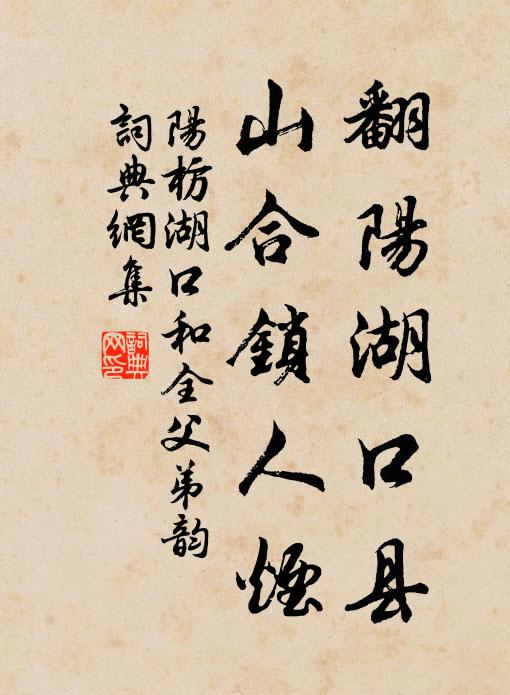 翻陽湖口县
山合鎖人煙
陽枥湖口和全父弟韵
詞典網集
詞典网印